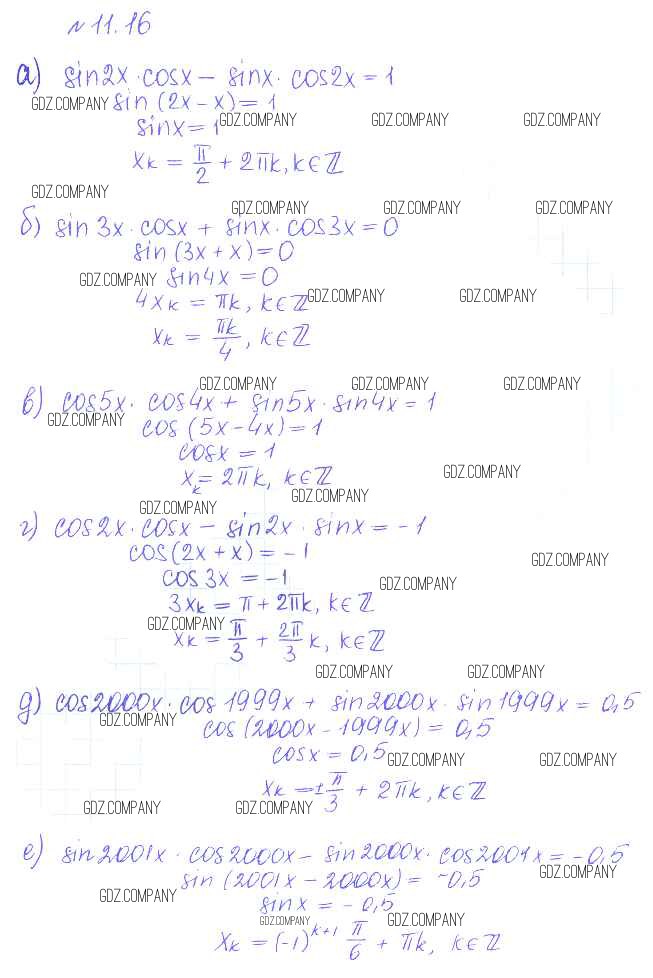 № 11.16
а) sin2x · cosx − sinx · cos2x = 1
GDZ.COMPANY sin (2x − x) = 1
sinx = 1 GDZ.COMPANY GDZ.COMPANY GDZ.COMPANY
xₖ = π/2 + 2πk, k∈ℤ
GDZ.COMPANY
GDZ.COMPANY GDZ.COMPANY GDZ.COMPANY
б) sin 3x · cosx + sinx · cos3x = 0
sin (3x + x) = 0
GDZ.COMPANY sin4x = 0
4xₖ = πk, k∈ℤ GDZ.COMPANY GDZ.COMPANY
xₖ = πk/4, k∈ℤ
GDZ.COMPANY GDZ.COMPANY GDZ.COMPANY
в) cos5x · cos4x + sin5x · sin4x = 1
GDZ.COMPANY cos (5x − 4x) = 1
cosx = 1
xₖ = 2πk, k∈ℤ GDZ.COMPANY
GDZ.COMPANY GDZ.COMPANY
г) cos2x · cosx − sin2x · sinx = −1
cos(2x + x) = −1 GDZ.COMPANY
cos3x = −1 GDZ.COMPANY
3xₖ = π + 2πk, k∈ℤ
GDZ.COMPANY
xₖ = π/3 + 2π/3 k, k∈ℤ
GDZ.COMPANY GDZ.COMPANY
д) cos2000x · cos 1999x + sin2000x · sin1999x = 0,5
GDZ.COMPANY cos (2000x − 1999x) = 0,5
cosx = 0,5 GDZ.COMPANY GDZ.COMPANY
xₖ = ± π/3 + 2πk, k∈ℤ
GDZ.COMPANY GDZ.COMPANY
е) sin2001x · cos2000x − sin2000x · cos2001x = −0,5
GDZ.COMPANY
sin (2001x − 2000x) = −0,5
GDZ.COMPANY sinx = −0,5
GDZ.COMPANY GDZ.COMPANY
xₖ = (−1)ᵏ⁺¹ π/6 + πk, k∈ℤ